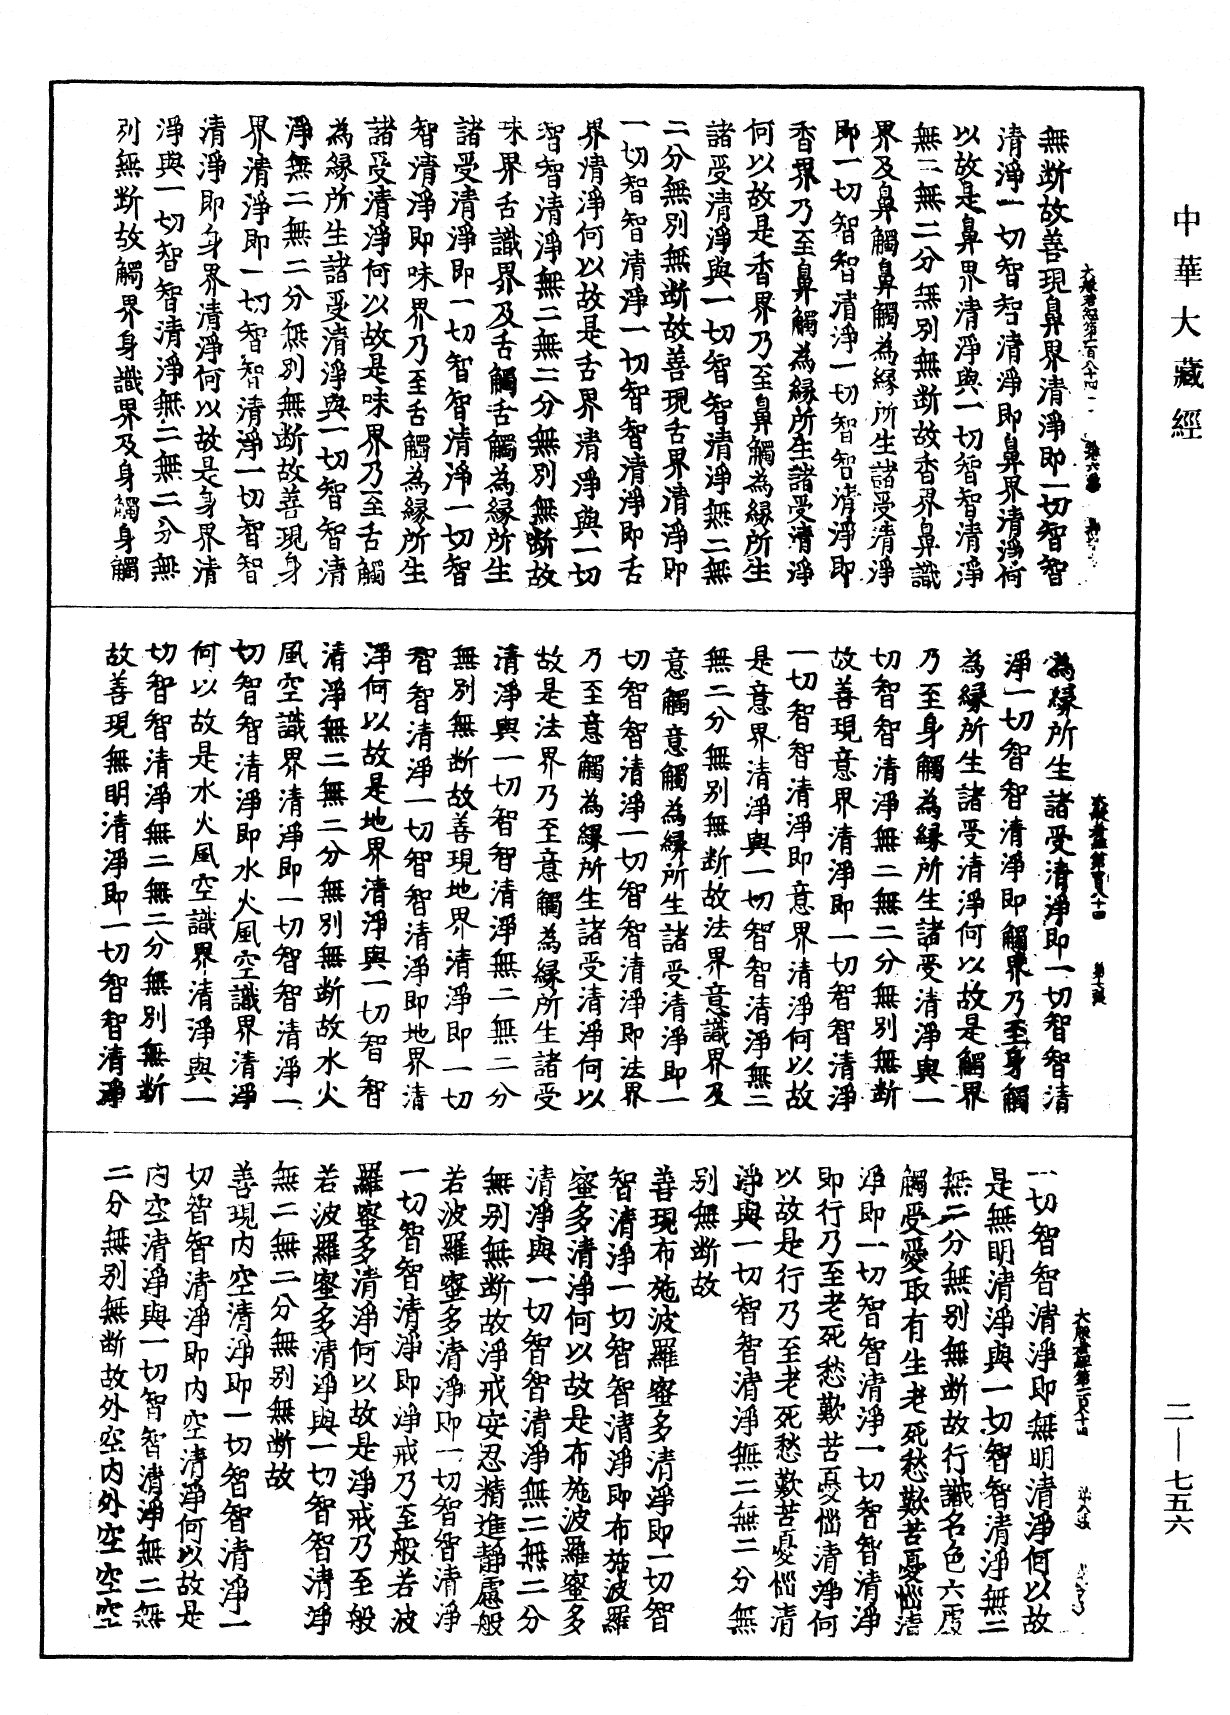 中華大藏經
無斷故善現鼻界清淨即一切智智
清淨一切智智清淨即鼻界清淨何
以故是鼻界清淨與一切智智清淨
無二無二分無別無斷故香界鼻識
界及鼻觸鼻觸為緣所生諸受清淨
即一切智智清淨一切智智清淨即
香界乃至鼻觸為緣所生諸受清淨
何以故是香界乃至鼻觸為緣所生
諸受清淨與一切智智清淨無二無
二分無別無斷故善現舌界清淨即
一切智智清淨一切智智清淨即舌
界清淨何以故是舌界清淨與一切
智智清淨無二無二分無別無斷故
味界舌識界及舌觸舌觸為緣所生
諸受清淨即一切智智清淨一切智
智清淨即味界乃至舌觸為緣所生
諸受清淨何以故是味界乃至舌觸
為緣所生諸受清淨與一切智智清
淨無二無二分無別無斷故善現身
界清淨即一切智智清淨一切智智
清淨即身界清淨何以故是身界清
淨與一切智智清淨無二無二分無
別無斷故觸界身識界及身觸身觸
大般若經第一百八十四
為緣所生諸受清淨即一切智智清
淨一切智智清淨即觸界乃至身觸
為緣所生諸受清淨何以故是觸界
乃至身觸為緣所生諸受清淨與一
切智智清淨無二無二分無別無斷
故善現意界清淨即一切智智清淨
一切智智清淨即意界清淨何以故
是意界清淨與一切智智清淨無二
無二分無別無斷故法界意識界及
意觸意觸為緣所生諸受清淨即一
切智智清淨一切智智清淨即法界
乃至意觸為緣所生諸受清淨何以
故是法界乃至意觸為緣所生諸受
清淨與一切智智清淨無二無二分
無別無斷故善現地界清淨即一切
智智清淨一切智智清淨即地界清
淨何以故是地界清淨與一切智智
清淨無二無二分無別無斷故水火
風空識界清淨即一切智智清淨一
切智智清淨即水火風空識界清淨
何以故是水火風空識界清淨與一
切智智清淨無二無二分無別無斷
故善現無明清淨即一切智智清淨
大般若經第一百八十四 第七張
一切智智清淨即無明清淨何以故
是無明清淨與一切智智清淨無二
無二分無別無斷故行識名色六處
觸受愛取有生老死愁歎苦憂惱清
淨即一切智智清淨一切智智清淨
即行乃至老死愁歎苦憂惱清淨何
以故是行乃至老死愁歎苦憂惱清
淨與一切智智清淨無二無二分無
別無斷故
善現布施波羅蜜多清淨即一切智
智清淨一切智智清淨即布施波羅
蜜多清淨何以故是布施波羅蜜多
清淨與一切智智清淨無二無二分
無別無斷故淨戒安忍精進靜慮般
若波羅蜜多清淨即一切智智清淨
一切智智清淨即淨戒乃至般若波
羅蜜多清淨何以故是淨戒乃至般
若波羅蜜多清淨與一切智智清淨
無二無二分無別無斷故
善現內空清淨即一切智智清淨一
切智智清淨即內空清淨何以故是
內空清淨與一切智智清淨無二無
二分無別無斷故外空內外空空空
大般若經第一百八十四
二—七五六